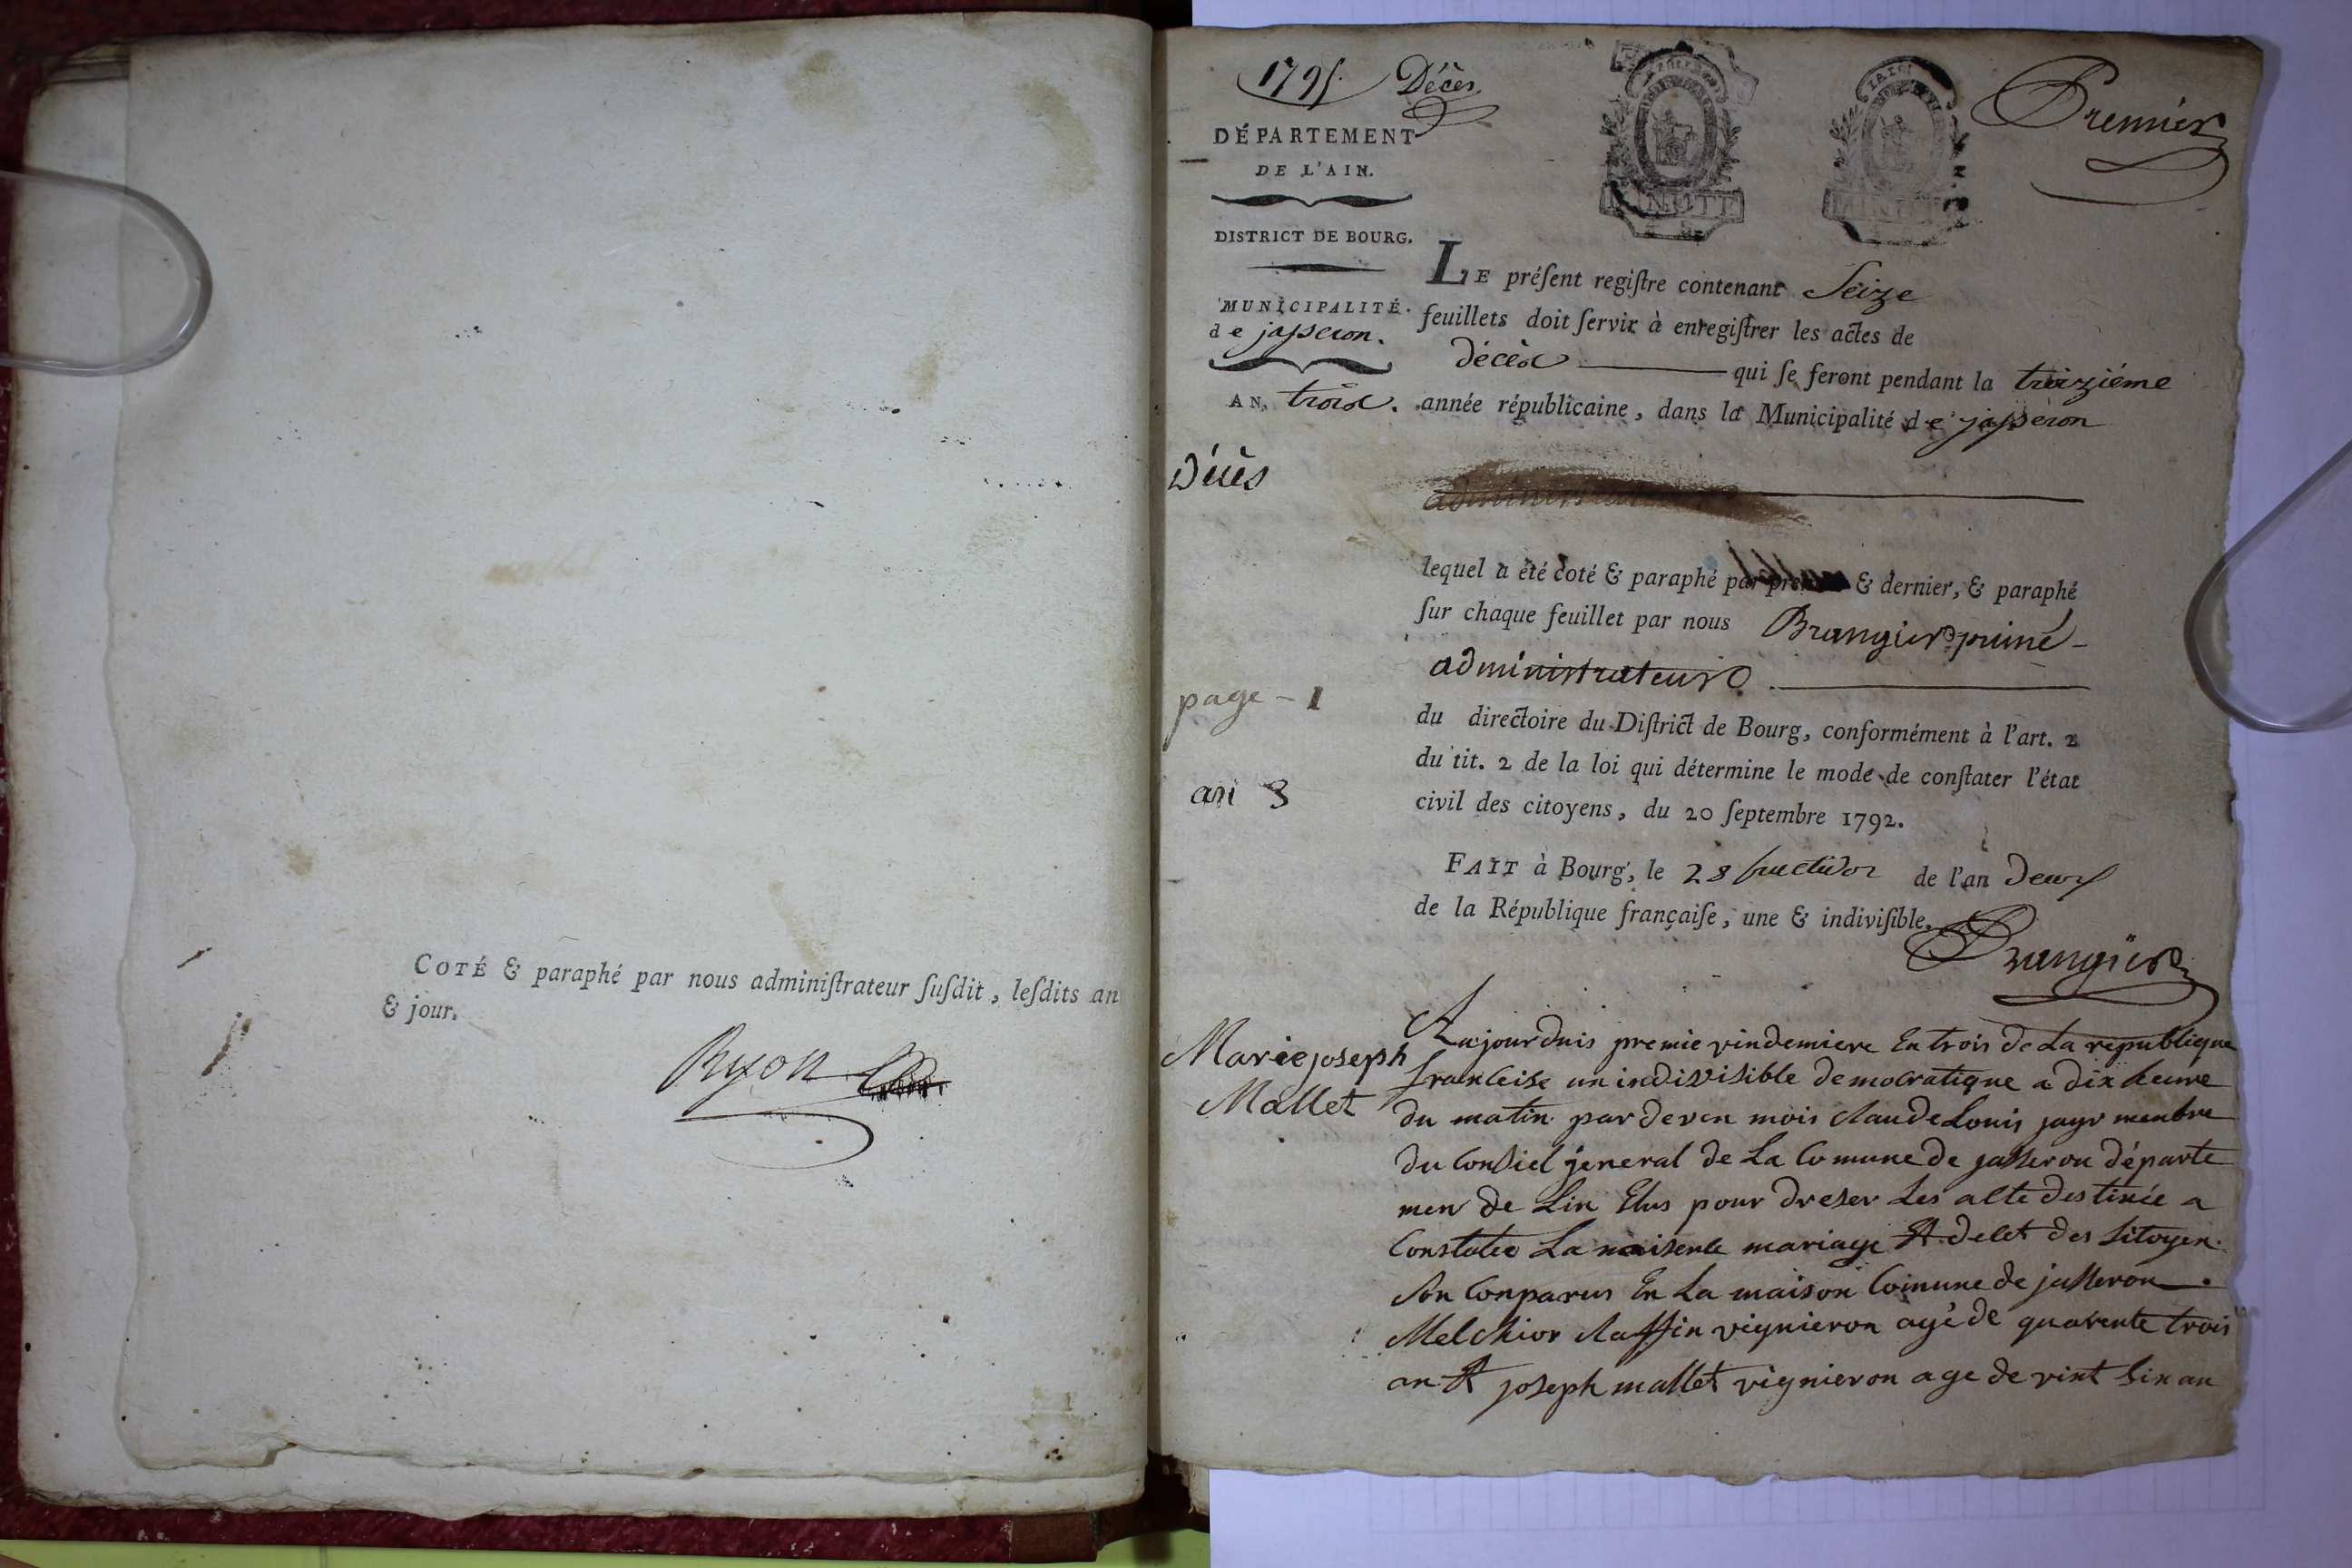 COTÉ & paraphé par nous adminiſtrateur ſuſdit, leſdits an
& jour.
Ryon
1795. Décès.
Premier
DÉPARTEMENT
DE L'AIN.
DISTRICT DE BOURG.
MUNICIPALITÉ.
de jasseron.
AN troisе.
LE préſent regiſtre contenant Seize
feuillets doit ſervir à enregiſtrer les actes de
décès qui ſe feront pendant la troiziéme
année républicaine, dans la Municipalité de jasseron
Décès
lequel a été coté & paraphé par & dernier, & paraphé
ſur chaque feuillet par nous Brangier puiné
administrateur
page - 1
du directoire du Diſtrict de Bourg, conformément à l'art. 2
du tit. 2 de la loi qui détermine le mode de conſtater l'état
an 3
civil des citoyens, du 20 ſeptembre 1792.
FAIT à Bourg, le 28 fructidor de l'an deux
de la République françaiſe, une & indiviſible.
Brangier
Marie joseph
Mallet
Aujourduis premie vindemiere En trois de La republique
franceise un indivisible democratique a dix heure
du matin par deven mois Claude Louis jayr menbre
du Consiel jeneral de La Comune de jasseron départe
men de Lin Elus pour dreser Les acte destinée a
Constatee La naisence mariage Et decet des sitoyen
Son Conparus En La maison Comune de jasseron
Melchior Claffin vignieron agé de quarente trois
an Et joseph mallet vignieron age de vint six an